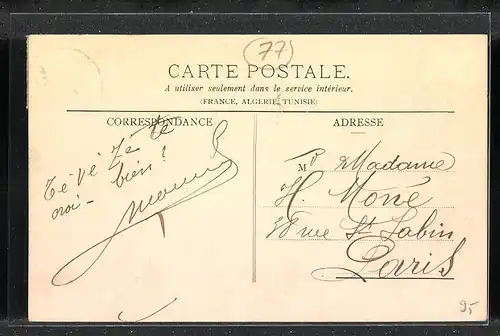 (77)
CARTE POSTALE.
A utiliser seulement dans le service intérieur.
(FRANCE, ALGERIE, TUNISIE)
CORRESPONDANCE
ADRESSE
Té Vé Je te
crois bien !
M Madame
H. Moné
38 rue St Sabin
Paris
9,-